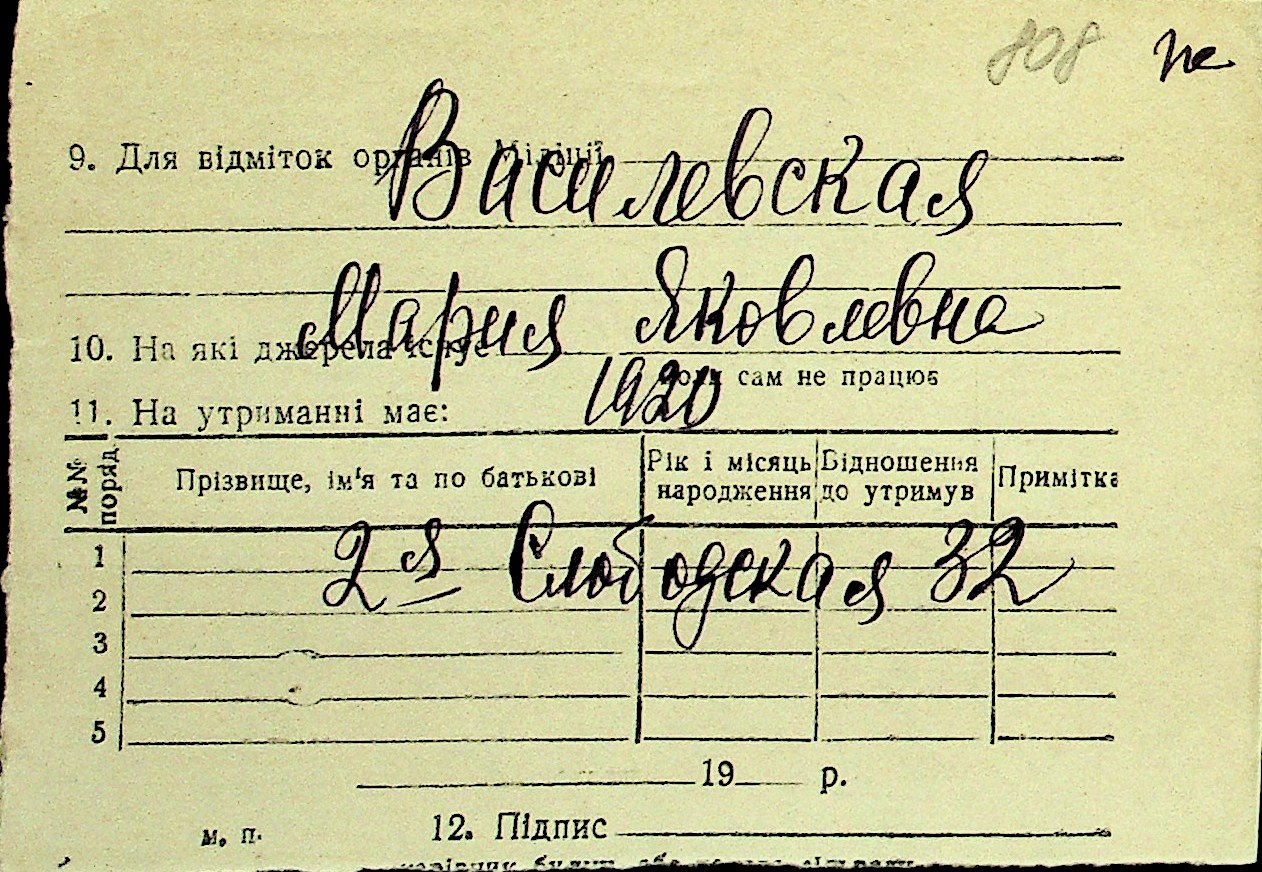 808 не
9. Для відміток органів Міліції
Василевская
Мария Яковлевна
10. На які джерела існує
коли сам не працює
1920
11. На утриманні має:
№№ поряд. Прізвище, ім'я та по батькові Рік і місяць народження Відношення до утримув Примітка
2я Слободская 32
1
2
3
4
5
19 р.
м. п. 12. Підпис